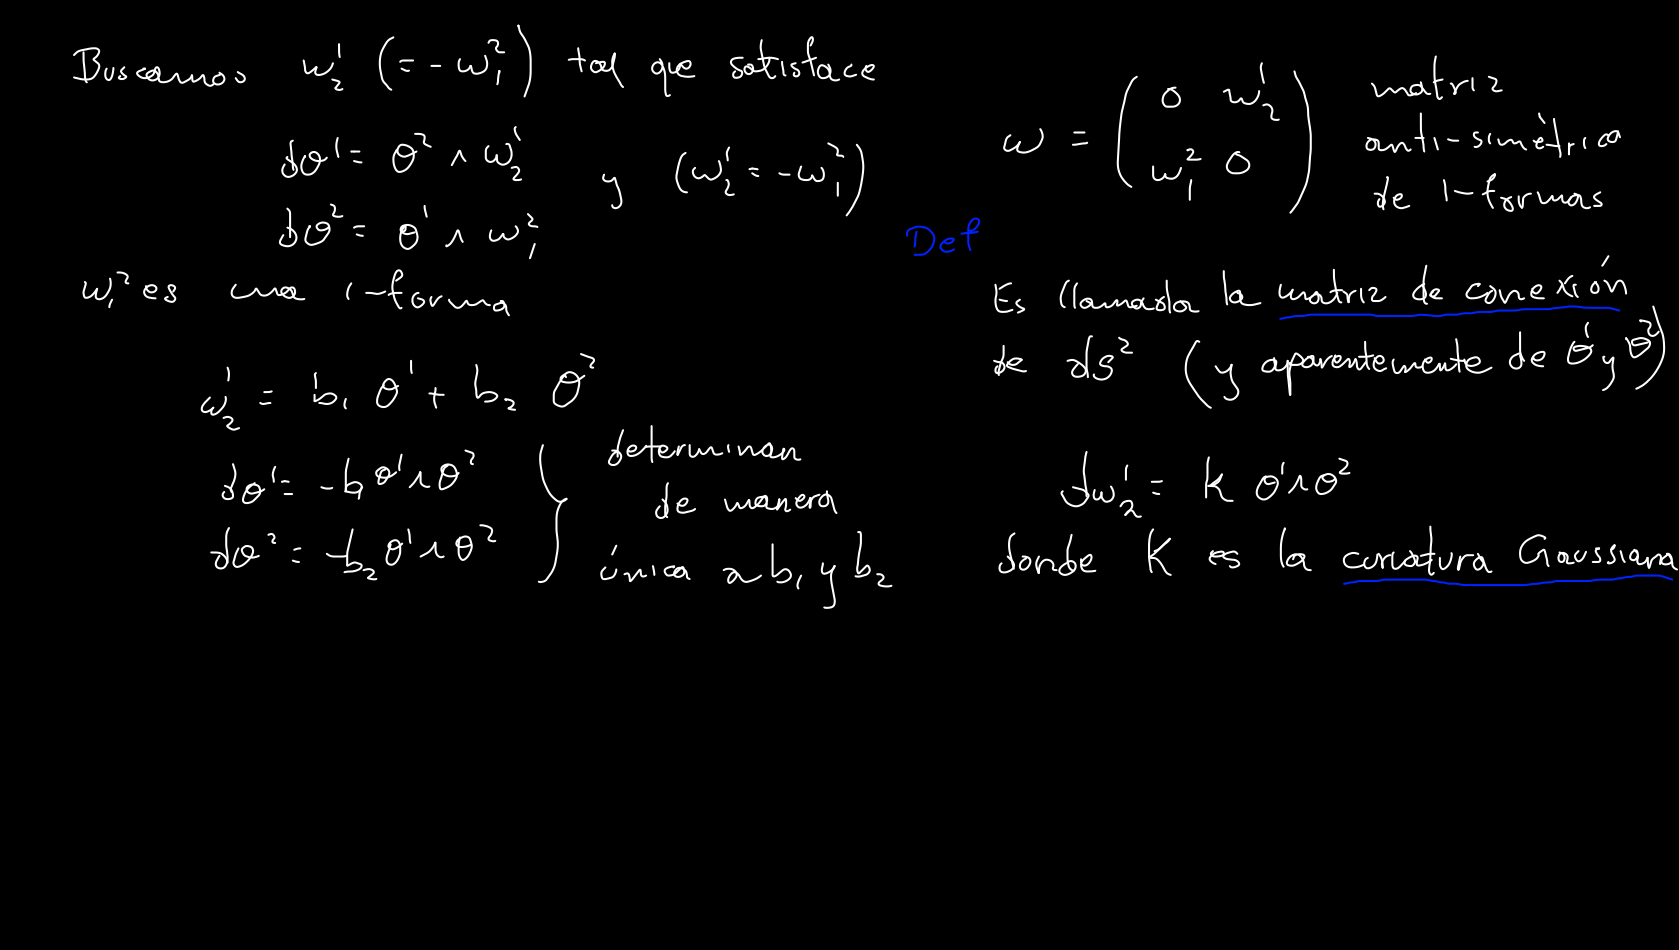 Buscamos ω¹₂ (= - ω²₁) tal que satisface
dθ¹ = θ² ∧ ω¹₂
y (ω¹₂ = - ω²₁)
dθ² = θ¹ ∧ ω²₁
ω²₁ es una 1-forma
ω¹₂ = b₁ θ¹ + b₂ θ²
dθ¹ = - b₁ θ¹ ∧ θ²
dθ² = - b₂ θ¹ ∧ θ²
determinan
de manera
única a b₁ y b₂
ω = ( 0 ω¹₂ ; ω²₁ 0 )
matriz
anti-simétrica
de 1-formas
Def
Es llamada la matriz de conexión
de ds² (y aparentemente de θ¹ y θ²)
dω¹₂ = K θ¹ ∧ θ²
donde K es la curvatura Gaussiana